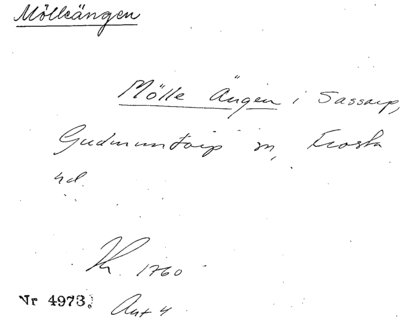 Mölleängen
Mölle Ängen i Sassarp,
Gudmuntorp sn, Frosta
hd.
Kr. 1760
Nr 4973. Akt 4